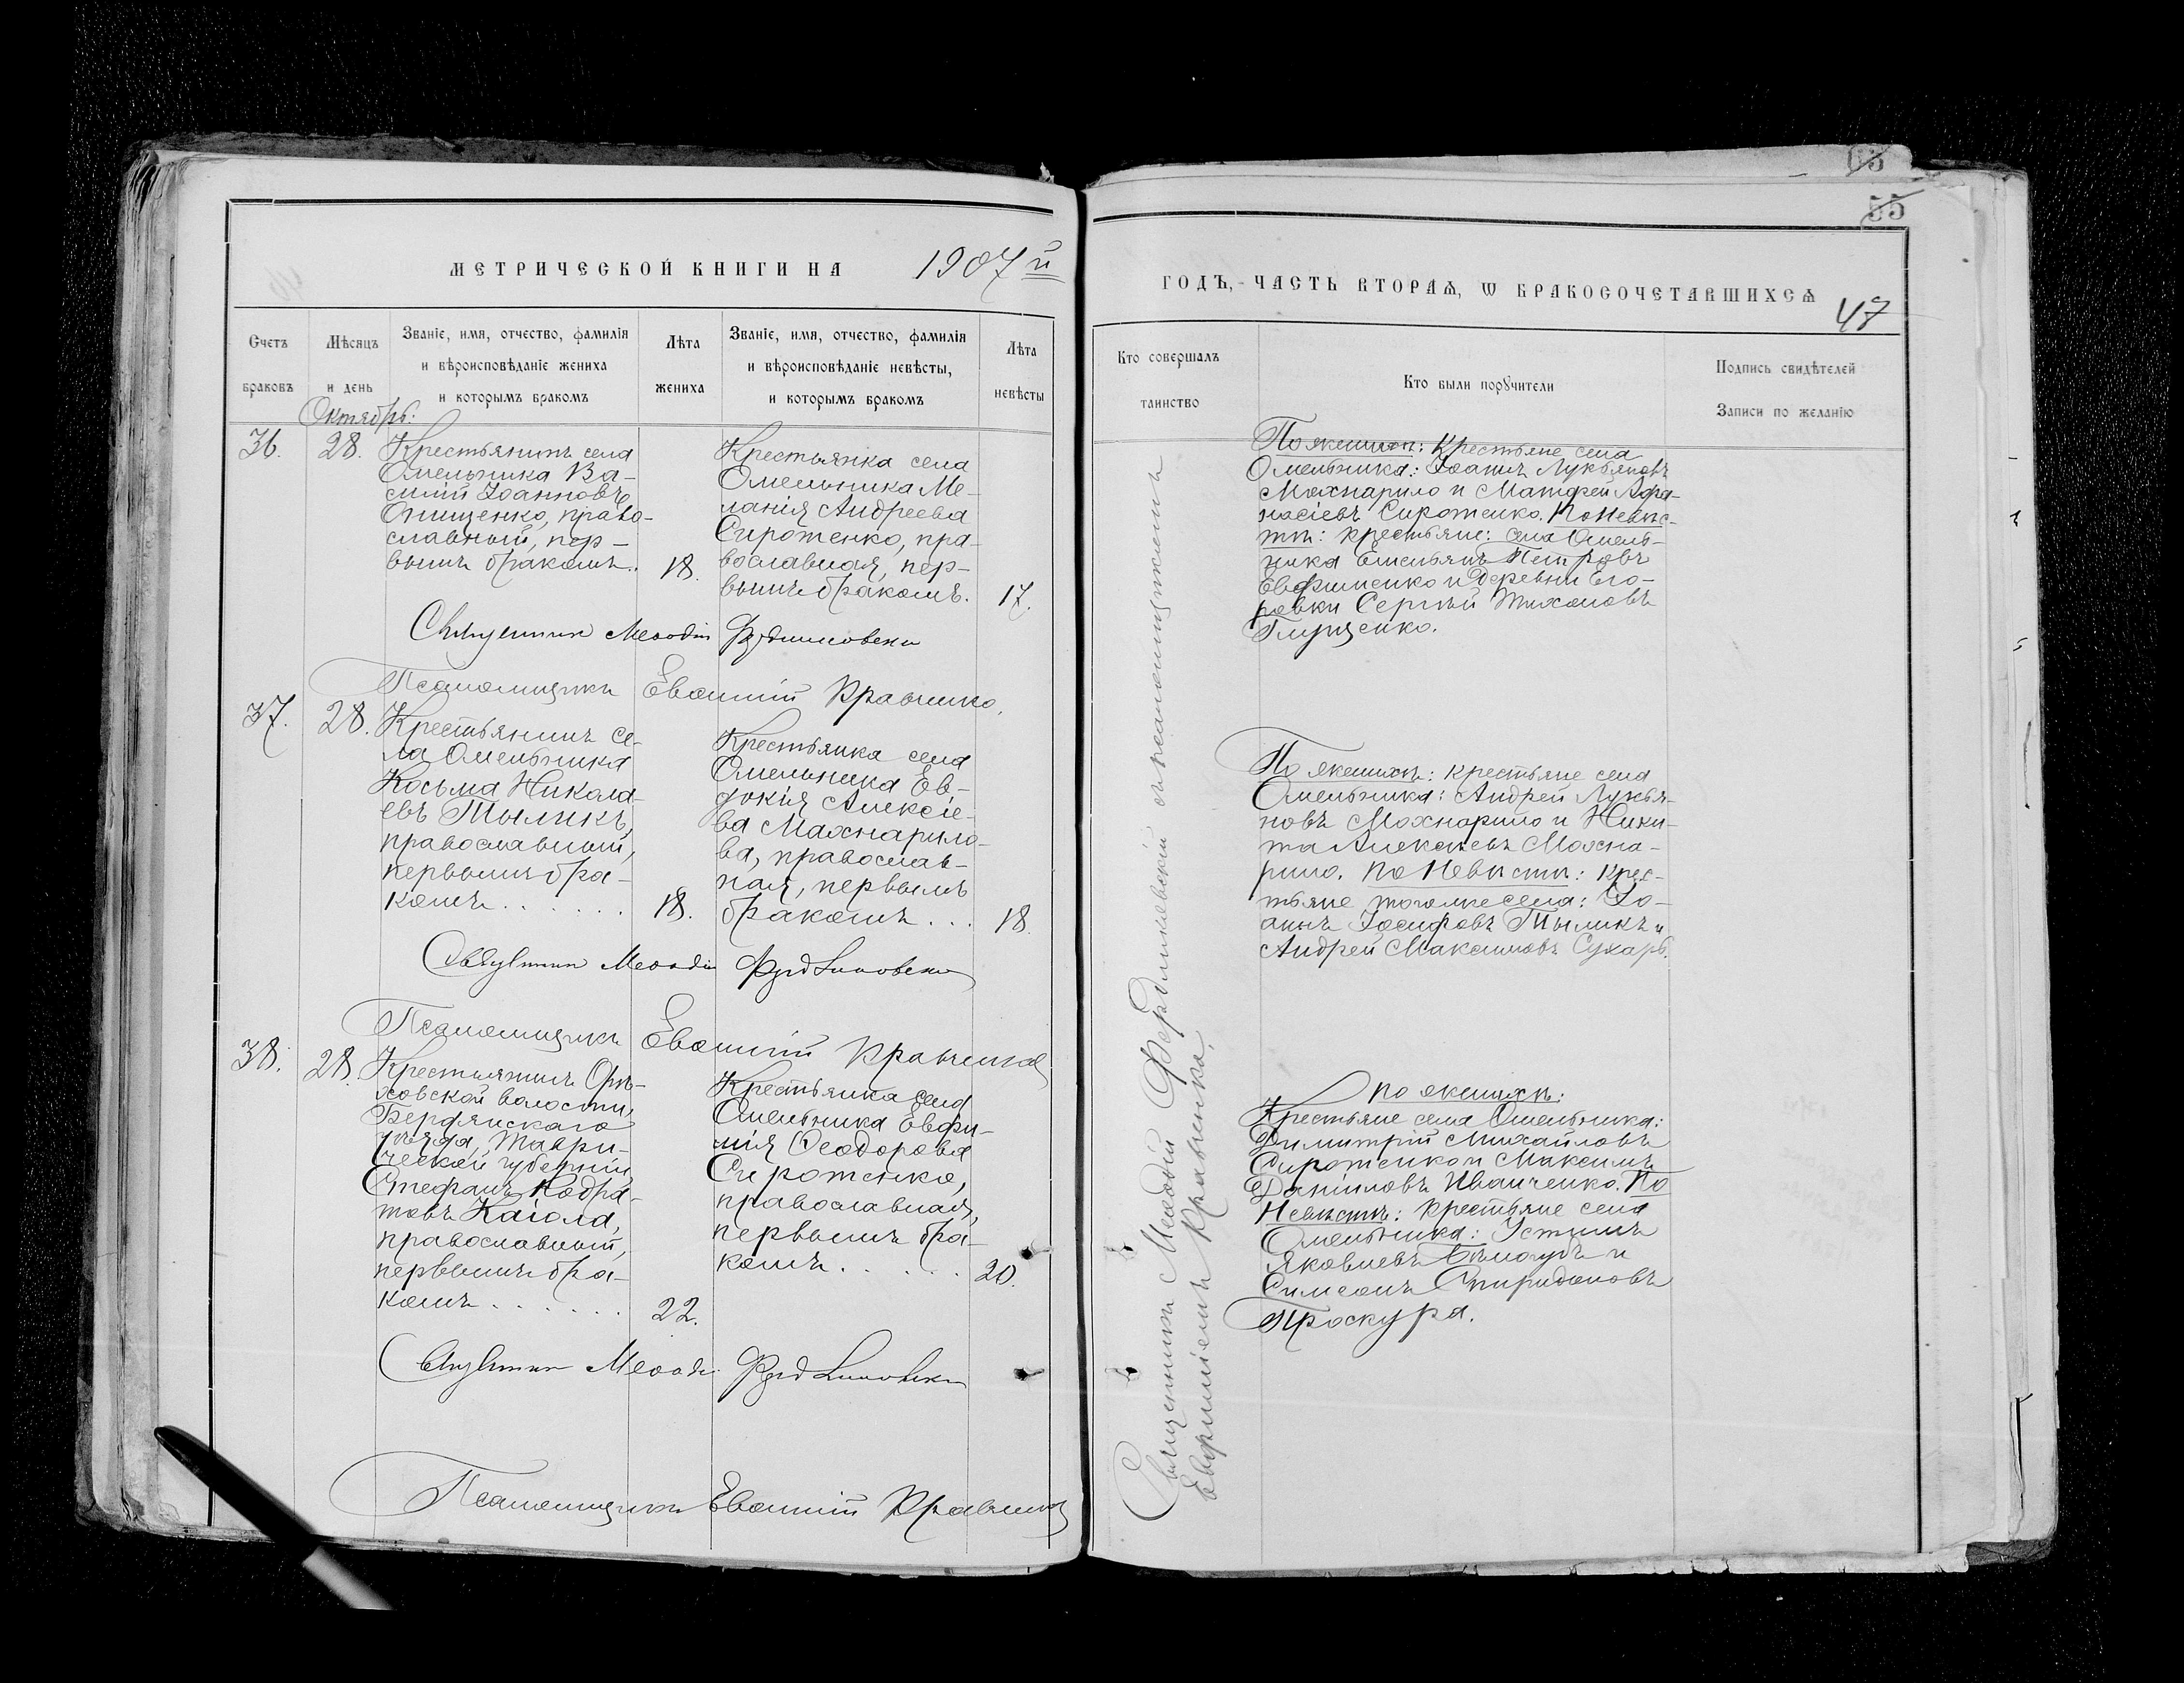 65
55
МЕТРИЧЕСКОЙ КНИГИ НА 1907й
ГОДЪ, ЧАСТЬ ВТОРАЯ, Ѡ БРАКОСОЧЕТАВШИХСЯ
47
Счетъ браковъ
Мѣсяцъ и день
Званіе, имя, отчество, фамилія
и вѣроисповѣданіе жениха
и которымъ бракомъ
Лѣта жениха
Званіе, имя, отчество, фамилія
и вѣроисповѣданіе невѣсты,
и которымъ бракомъ
Лѣта невѣсты
Кто совершалъ таинство
Кто были поручители
Подпись свидѣтелей
Записи по желанію
Октябрь:
36.
28.
Крестьянинъ села
Омельника Ва-
силій Іоанновъ
Онищенко, право-
славный, пер-
вымъ бракомъ.
18.
Крестьянка села
Омельника Ме-
ланія Андреева
Сиротенко, пра-
вославная, пер-
вымъ бракомъ.
17.
Священникъ Меѳодій Фердинковскій
Псаломщикъ Евѳимій Кравченко.
По женихѣ: Крестьяне села
Омельника: Іоаннъ Лукьяновъ
Махнарило и Матфей Афа-
насіевъ Сиротенко. По Невѣс-
тѣ: крестьяне: села Омель-
ника Емельянъ Петровъ
Евфименко и деревни Его-
ровки Сергѣй Тихоновъ
Глущенко.
37.
28.
Крестьянинъ се-
ла Омельника
Косьма Никола-
евъ Тыликъ,
православный,
первымъ бра-
комъ. . . . . .
18.
Крестьянка села
Омельника Ев-
докія Алексіе-
ва Махнарило-
ва, православ-
ная, первымъ
бракомъ . . .
18.
Священникъ Меѳодій Фердинковскій
Псаломщикъ Евѳимій Кравченко
По женихѣ: крестьяне села
Омельника: Андрей Лукья-
новъ Махнарило и Ники-
та Алексѣевъ Махна-
рило. По Невѣстѣ: крес-
тьяне того же села: Іо-
аннъ Іосифовъ Тыликъ и
Андрей Максимовъ Сухарь.
38.
28.
Крестьянинъ Орѣ-
ховской волости,
Бердянскаго
уѣзда, Таври-
ческой губерніи
Стефанъ Кодра-
товъ Каіола,
православный,
первымъ бра-
комъ . . . . . .
22.
Крестьянка села
Омельника Евфи-
мія Ѳеодорова
Сиротенко,
православная,
первымъ бра-
комъ . . . . . .
20.
Священникъ Меѳодій Фердинковскій
Псаломщикъ Евѳимій Кравченко
По женихѣ:
Крестьяне села Омельника:
Димитрій Михайловъ
Сиротенко и Максимъ
Даніиловъ Иванченко. По
Невѣстѣ: крестьяне села
Омельника: Устинъ
Яковлевъ Бѣлоудъ и
Симеонъ Спиридоновъ
Проскура.
Священникъ Меѳодій Фердинковскій съ псаломщикомъ
Евфиміемъ Кравченко.